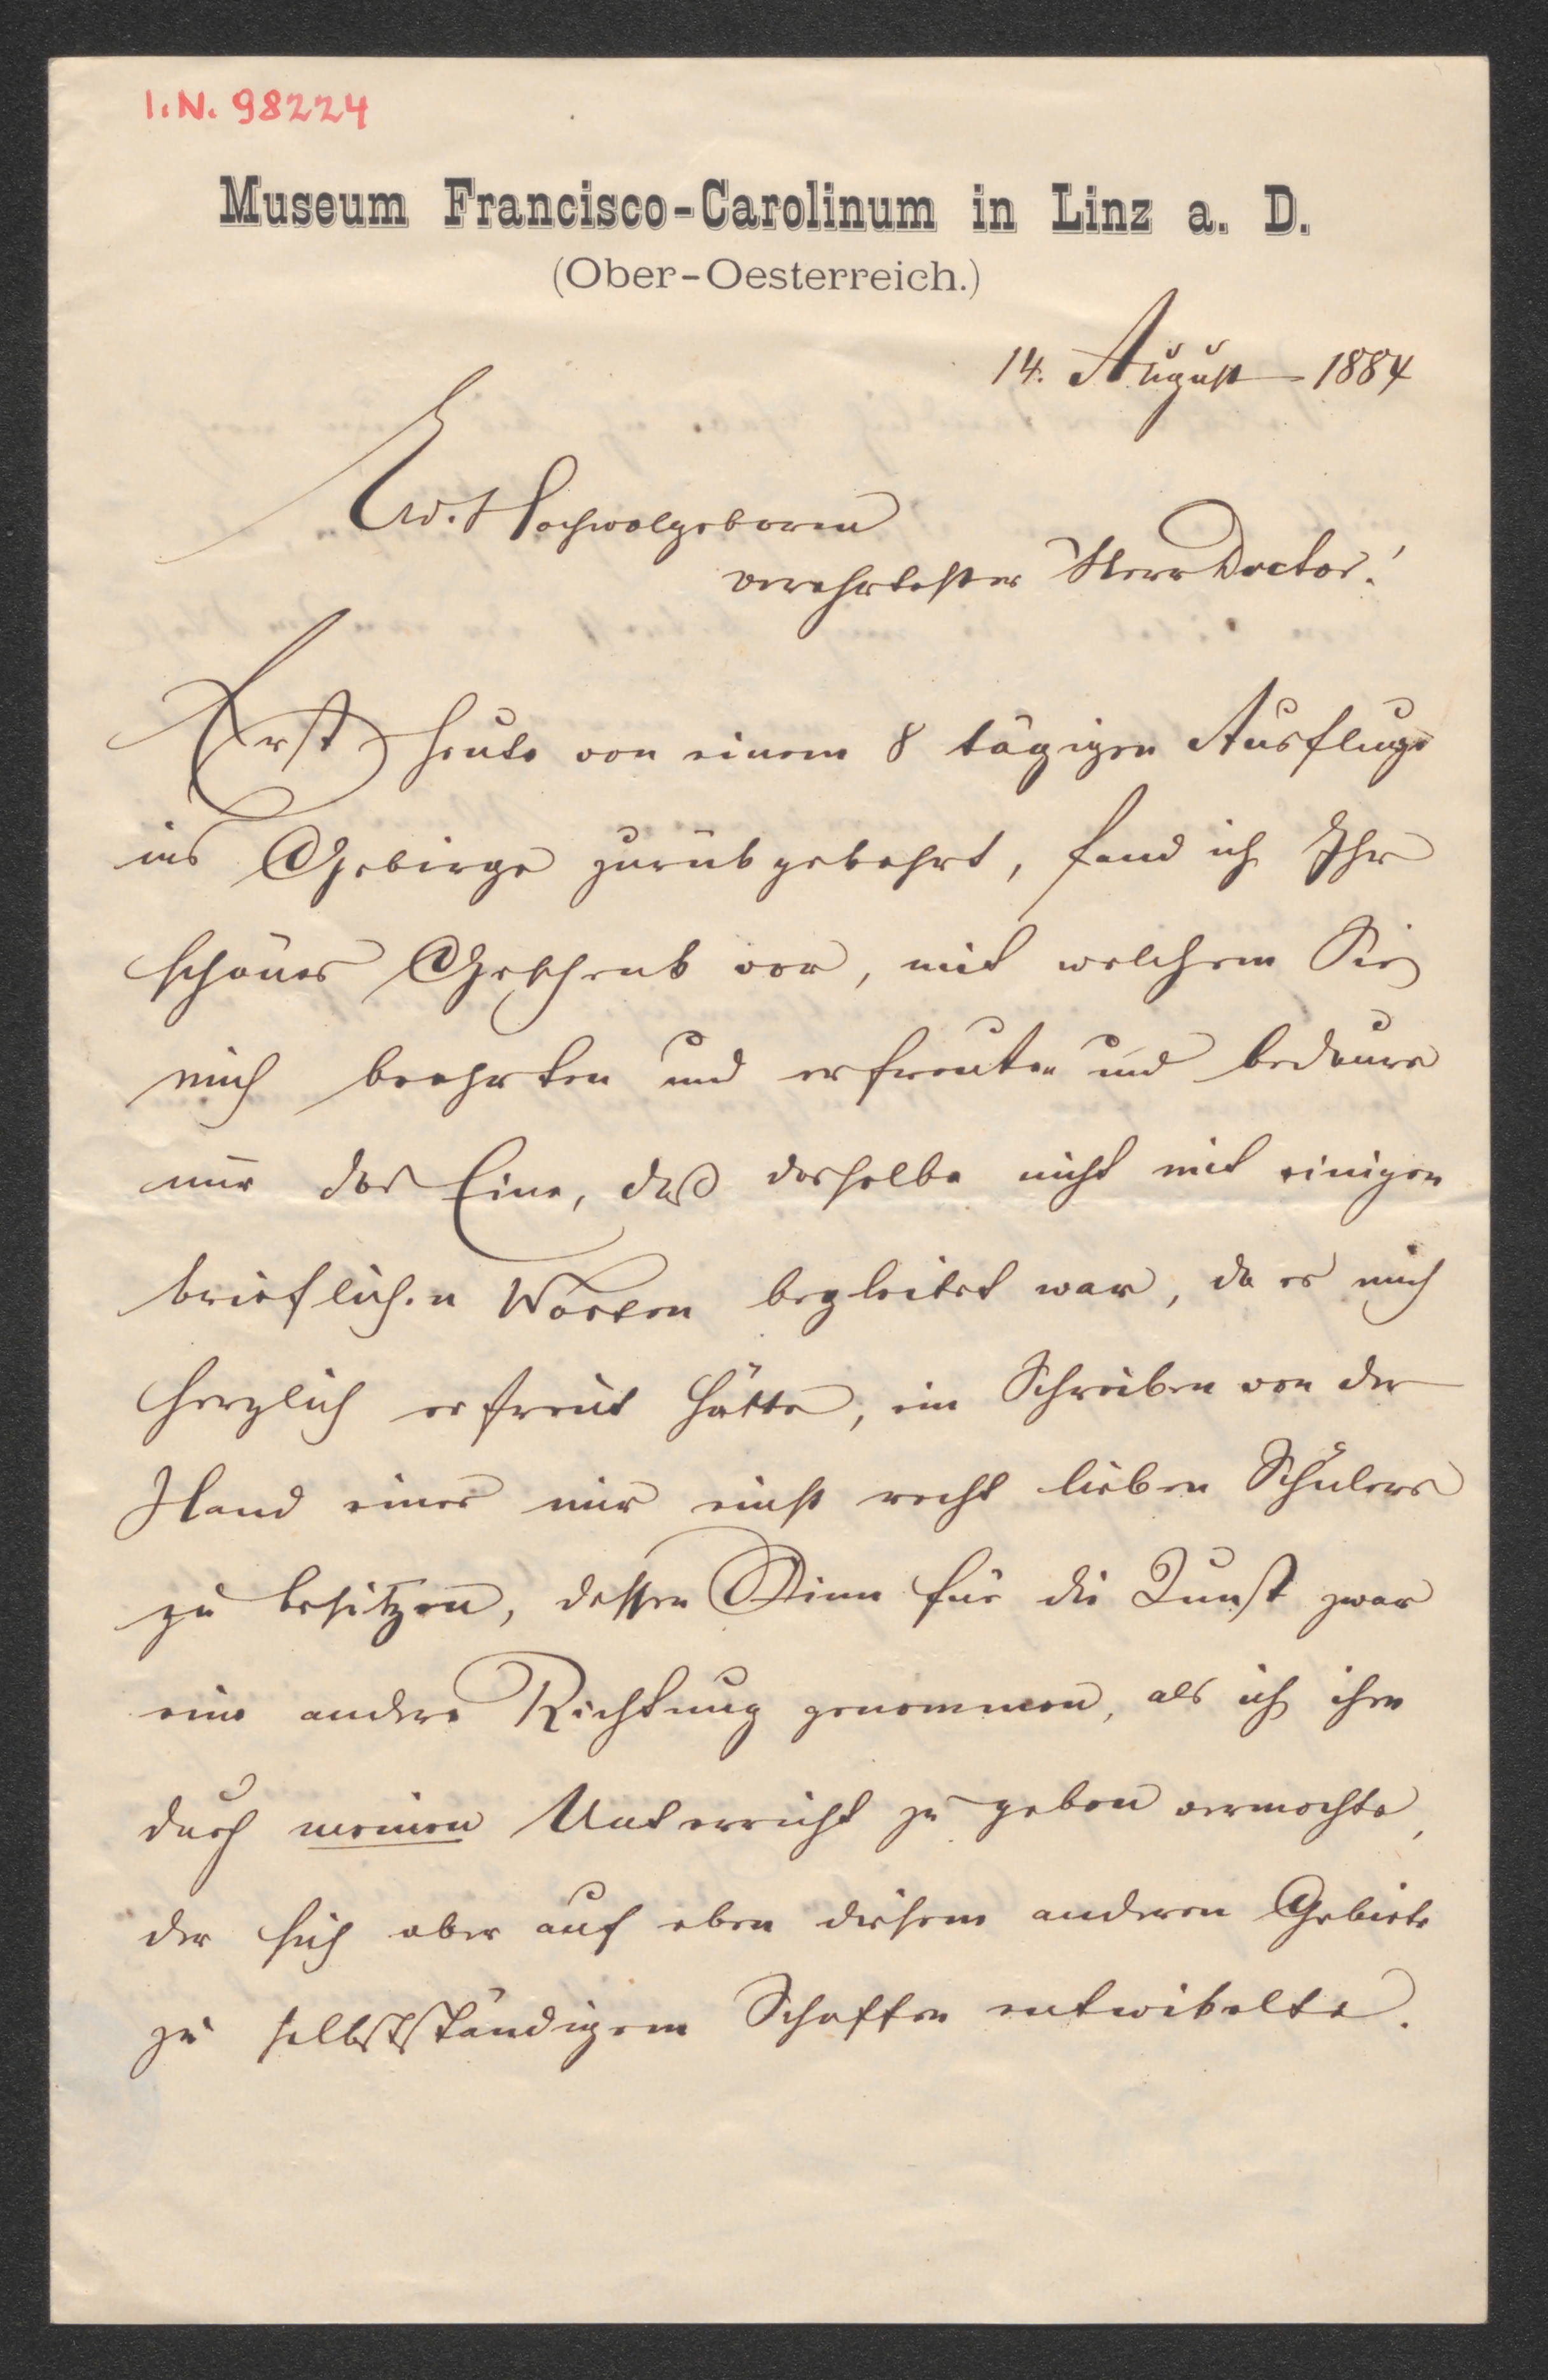 I.N. 98224
Museum Francisco-Carolinum in Linz a. D.
(Ober-Oesterreich.)
14. August 1884
Ew. Hochwolgeboren
verehrtester Herr Doctor!
Erst heute von einem 8 tägigen Ausfluge
ins Gebirge zurükgekehrt, fand ich Ihr
schönes Geschenk vor, mit welchem Sie
mich beehrten und erfreuten und bedaure
nur das Eine, daß dasselbe nicht mit einigen
brieflichen Worten begleitet war, da es mich
herzlich erfreut hätte, ein Schreiben von der
Hand eines mir einst recht lieben Schülers
zu besitzen, dessen Sinn für die Kunst zwar
eine andere Richtung genommen, als ich ihm
durch meinen Unterricht zu geben vermochte,
der sich aber auf eben diesem anderen Gebiete
zu selbstständigem Schaffen entwikelte.